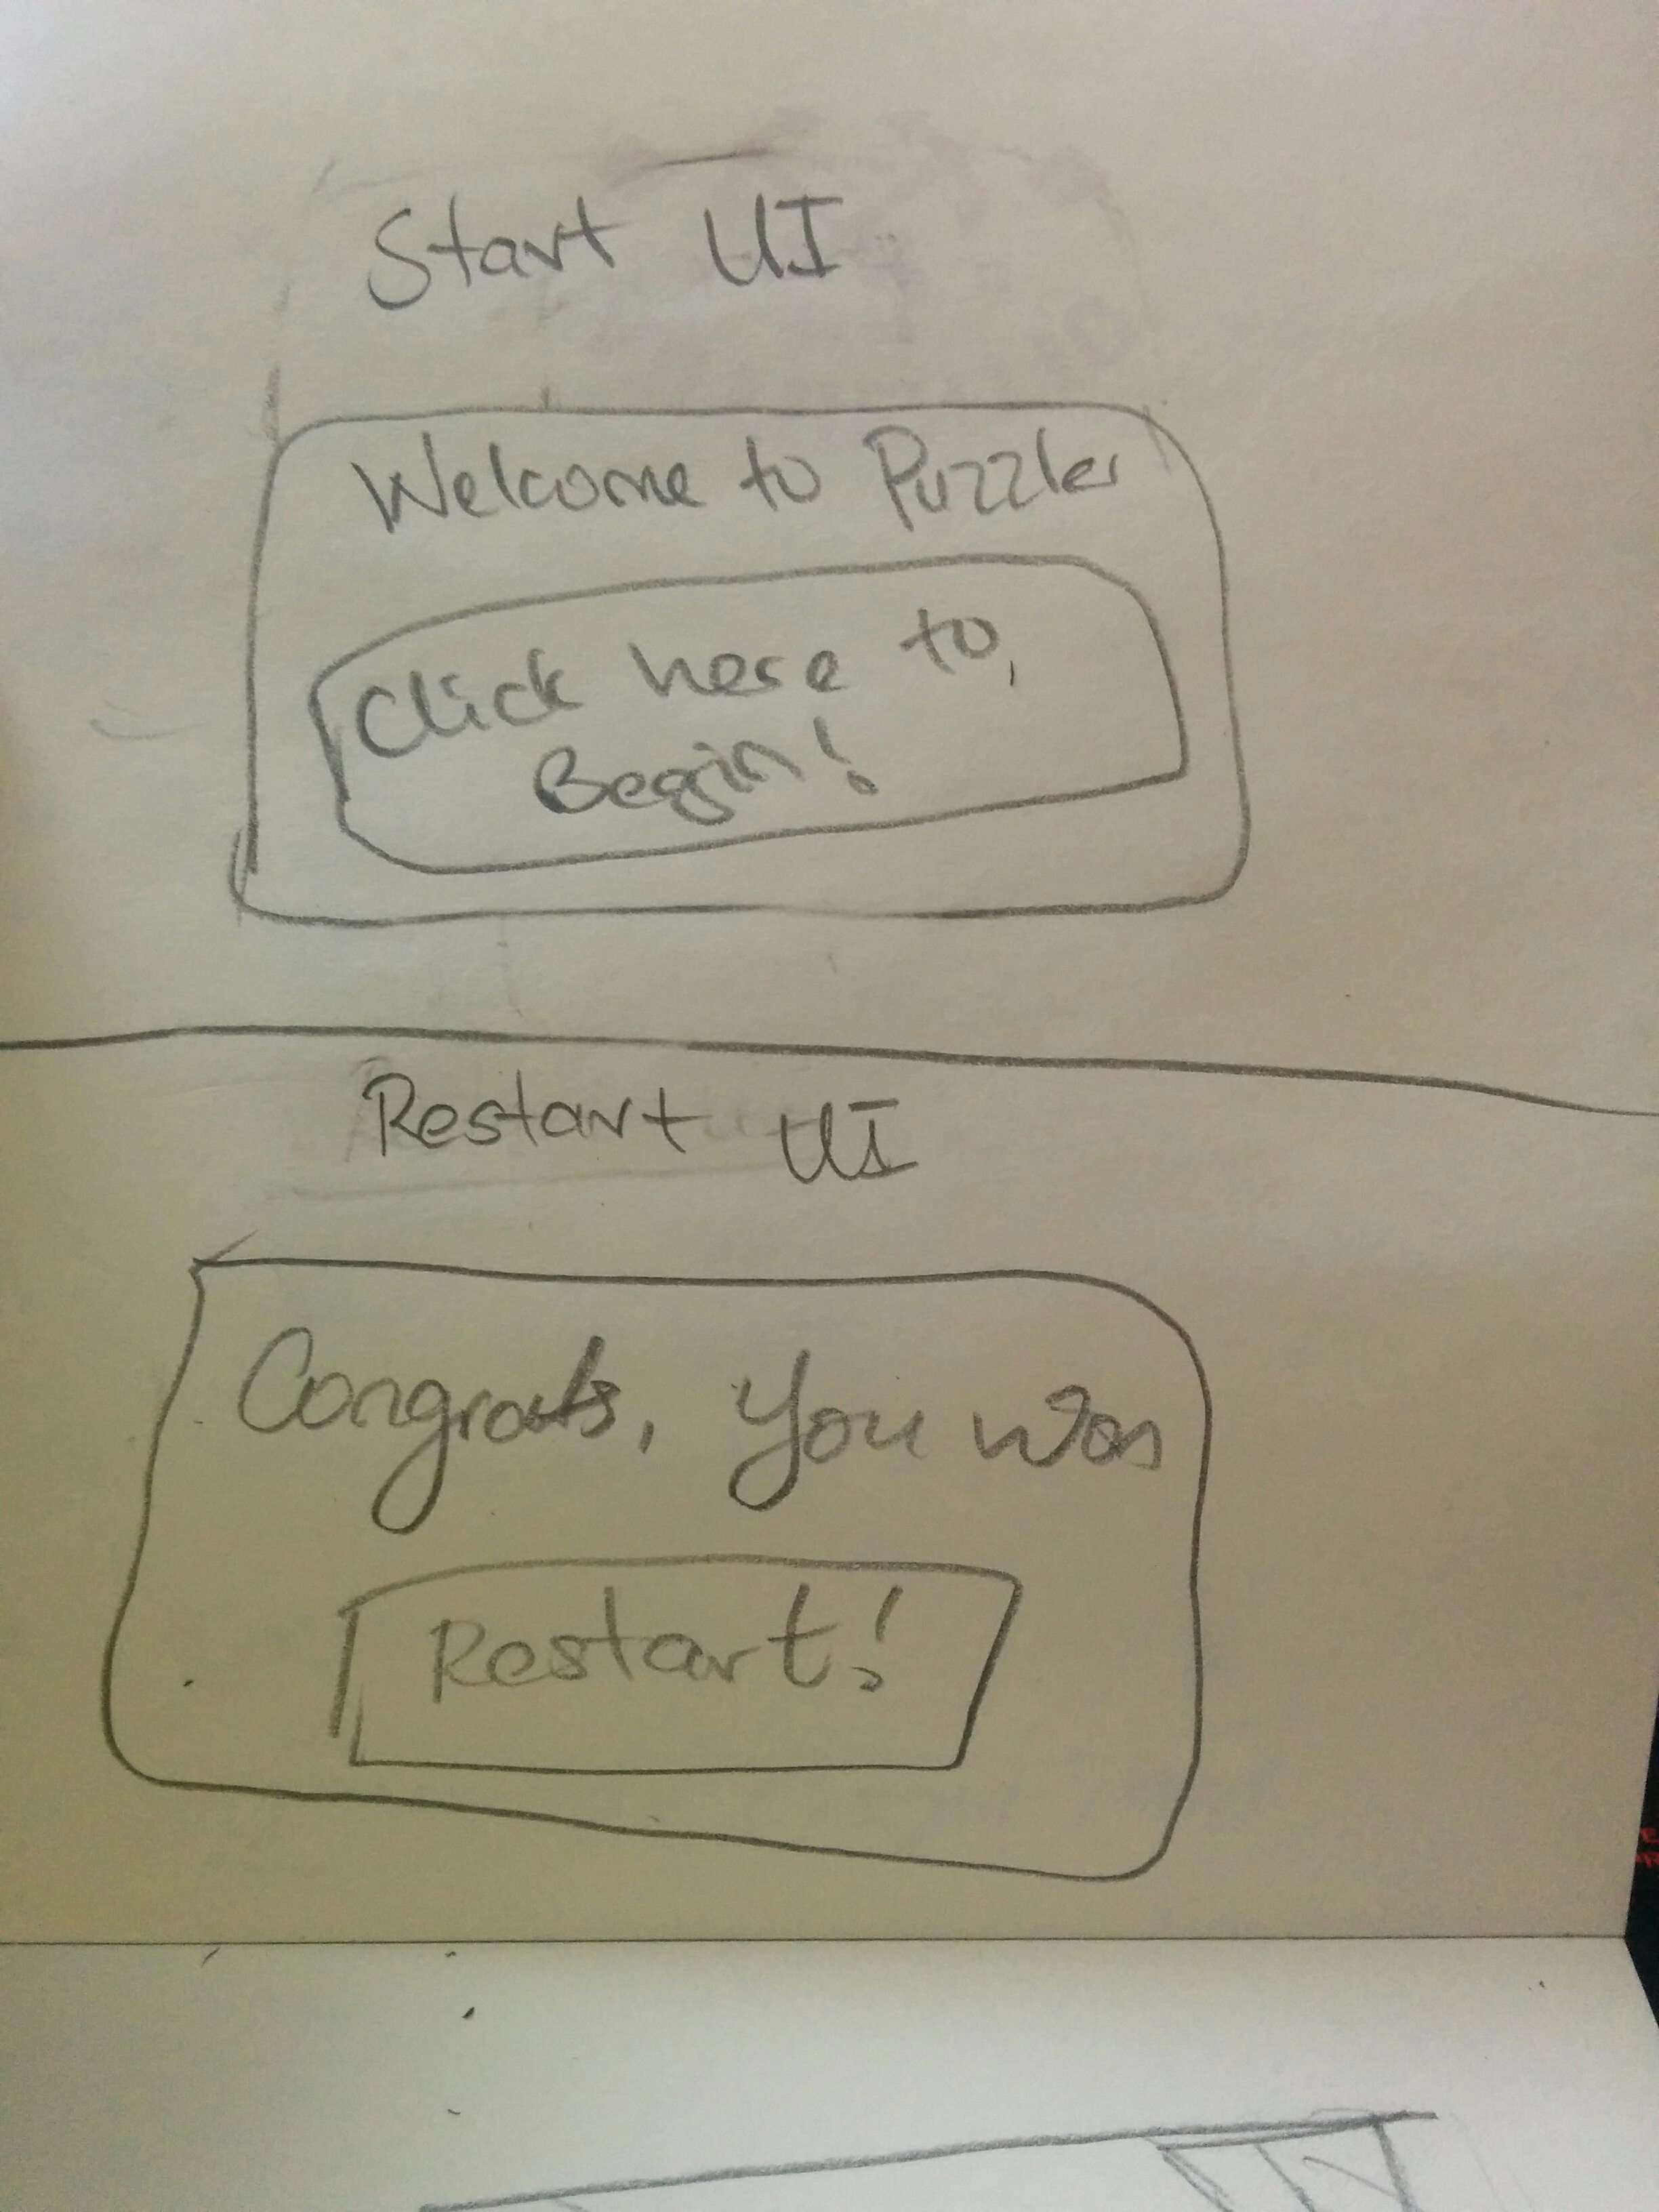 Start UI
Welcome to Puzzler
Click here to
Begin!
Restart UI
Congrats, You won
Restart!